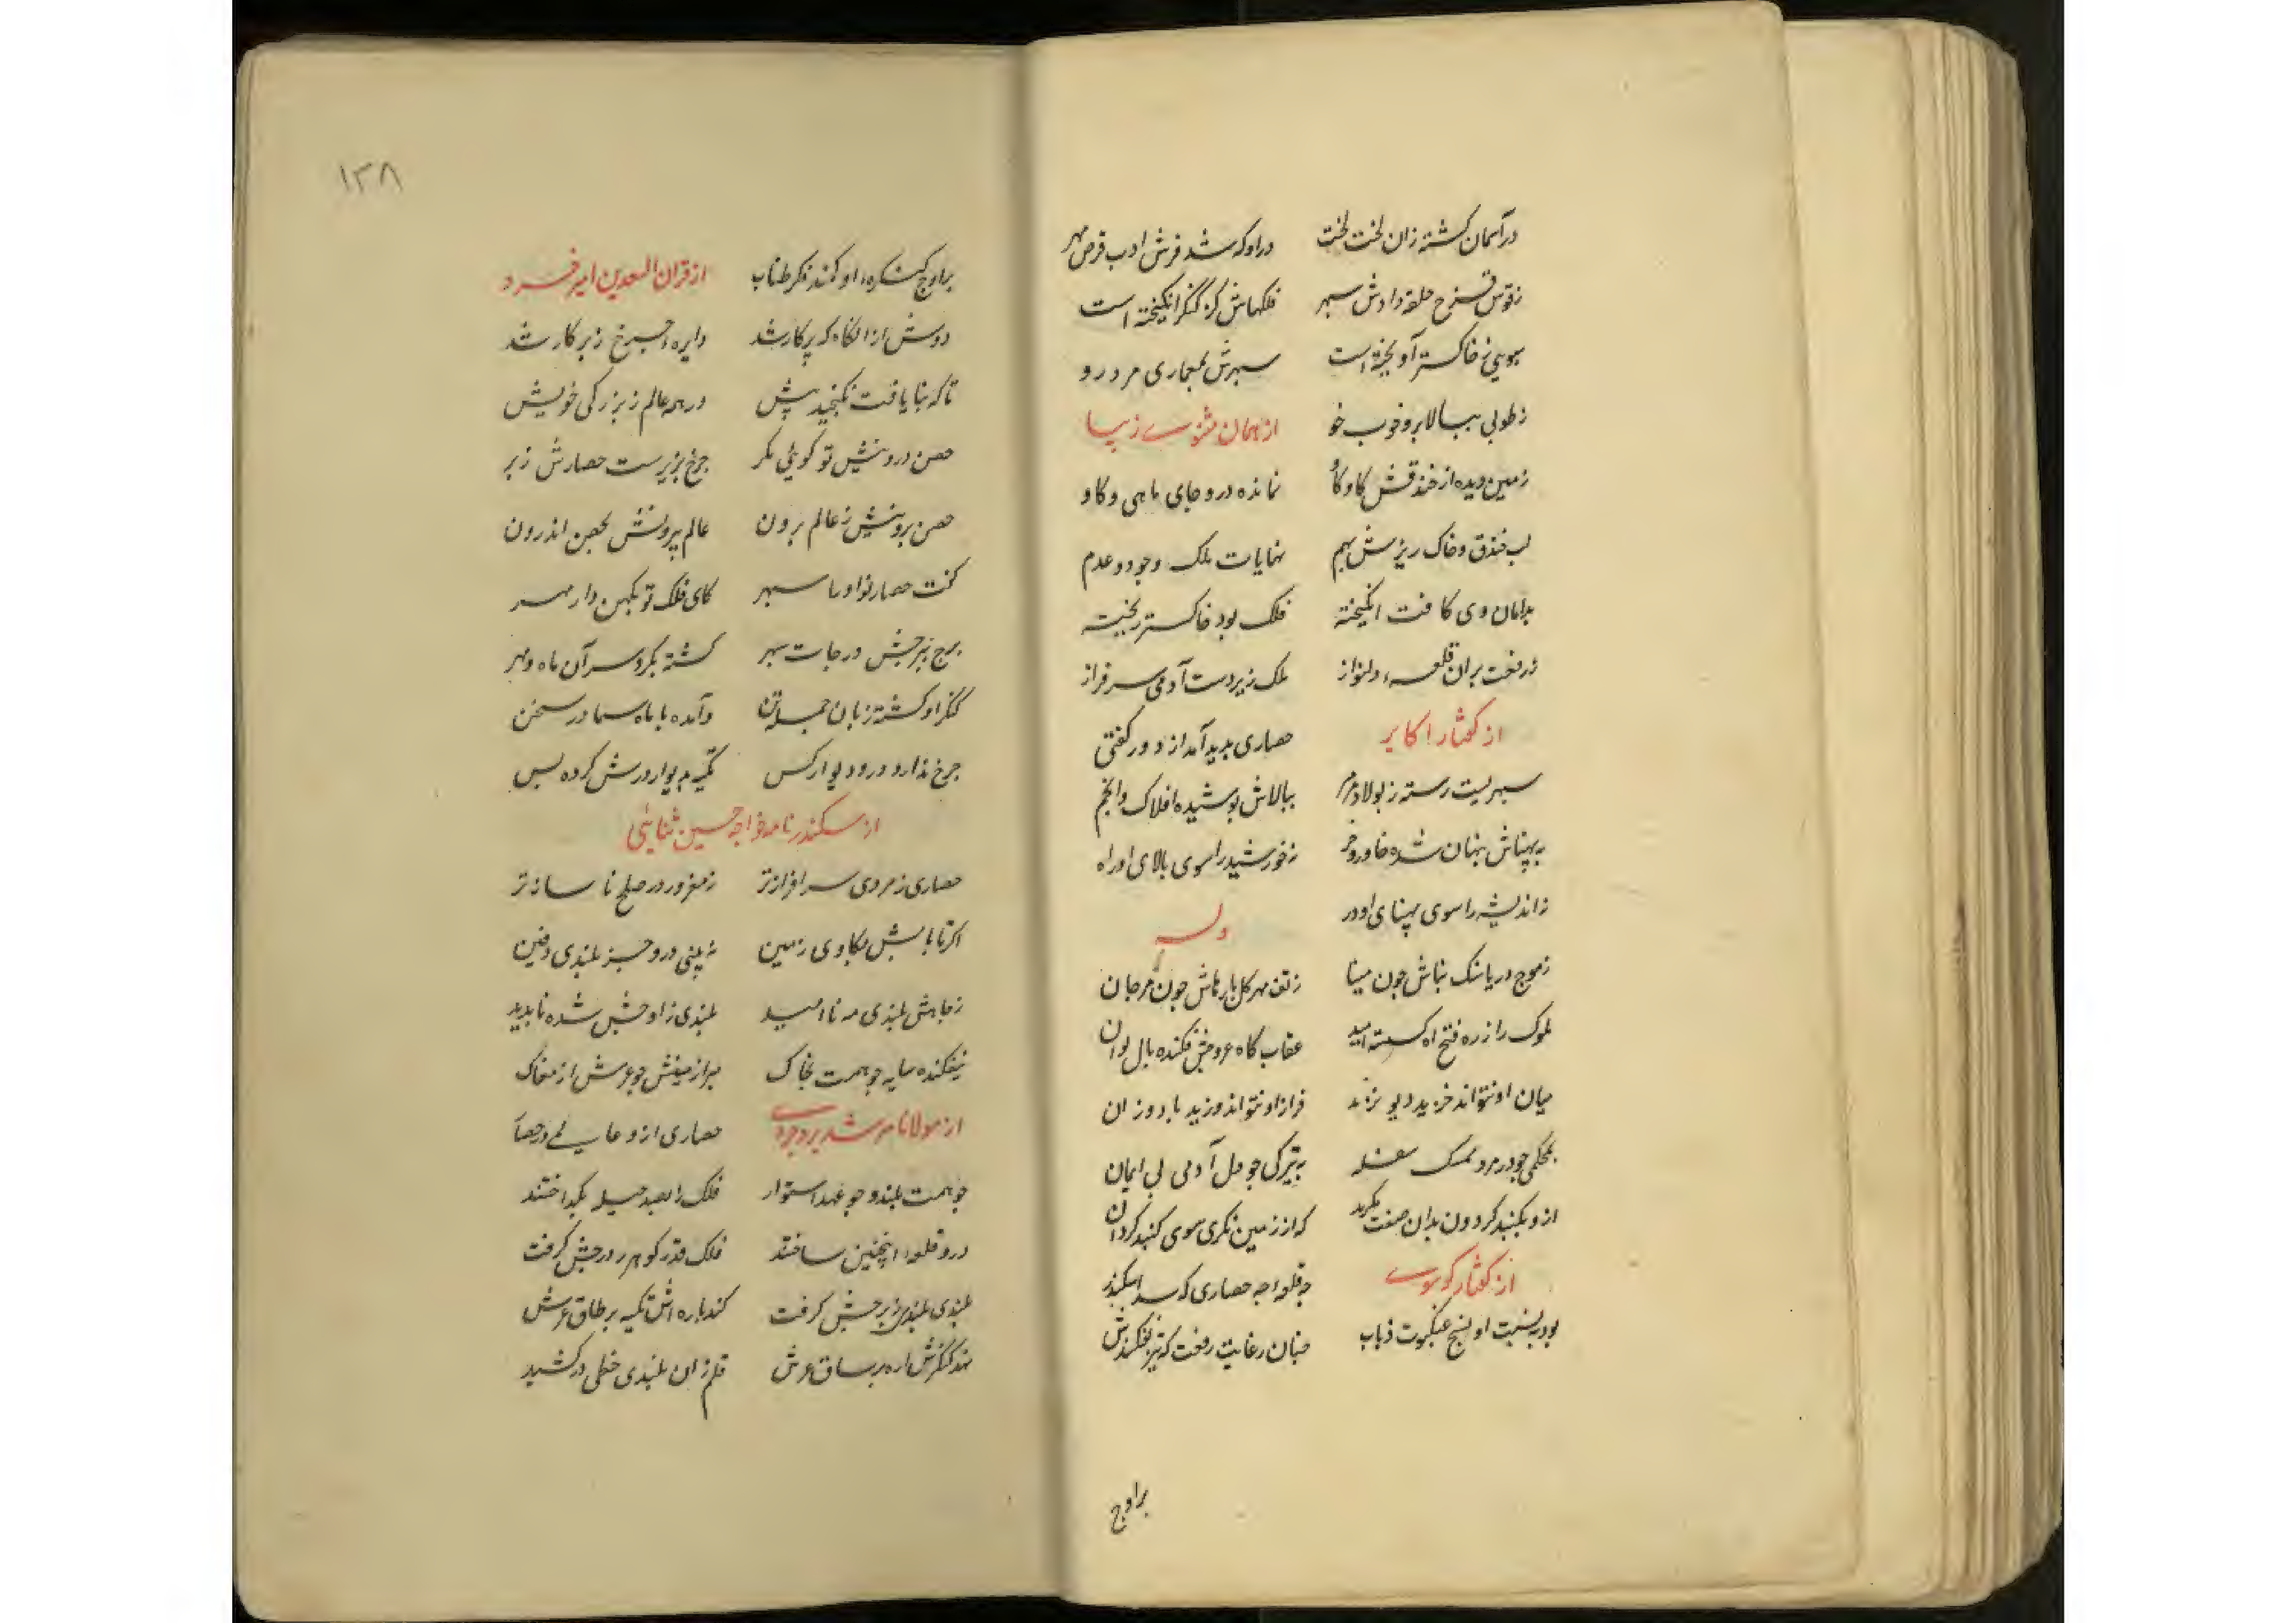 در آسمان کشته زان لخت لخت
در او که شد فرش ادب قرص مهر
ز قوس قزح حلقه دادش سپهر
فلکهاش کز کنکر انکیخته است
سبویی ز خاکستر آویخته است
سپهرش بمعماری مرد رو
ز طوبی ببالا بر و خوب خو
از همان مثنوی زیبا
زمین دیده از خندقش کاو کاو
نمانده درو جای ماهی و کاو
لب خندق و خاک ریزش بهم
نهایات ملک وجود و عدم
بدامان وی کافت انکیخته
فلک بود خاکستر ریخته
ز رفعت بران قلعه دلنواز
ملک زیر دست آدمی سرفراز
از کفتار اکابر
حصاری بدید آمد از دور کفتی
سپهریست رسته ز پولاد
ببالاش پوشیده افلاک و انجم
به پهناش پنهان شده خاور و
نه خورشید را سوی بالای او راه
نه اندیشه را سوی پهنای او در
وله
ز موج دریا سنک بناش چون مینا
ز تف مهر کل باره‌اش چون مرجان
ملوک را ز ره فتح او کسسته امید
عقاب کاه عروجش فکنده بال توان
میان او نتواند خزید دیو نژند
فراز او نتواند وزید باد وزان
بمحکمی چو در مرد ممسک سفله
به تیرکی چو دل آدمی بی ایمان
ازو بکنبد کردون بدان صفت نکرند
که از زمین نکری سوی کنبد کردان
از کفتار کوسوی
چه قلعه چه حصاری که سد اسکندر
بود به نسبت او نسج عنکبوت ذباب
چنان رعایت رفعت که تیر
براوج
۱۳۸
بر اوج کنکره او کمند فکر طناب
از قران السعدین امیر خسرو
دوش از آنکاه که پرکار شد
دایره چرخ ز پرکار شد
تا که بنا یافت نکنجید پیش
در همه عالم ز بزرکی خویش
حصن درونیش تو کوئی مکر
چرخ بزیرست حصارش زبر
حصن برونیش ز عالم برون
عالم بیرونش بحصن اندرون
کفت حصار نو او با سپهر
کای فلک تو بکهن دار مهر
برج ببرجش درجات سپهر
کشته بکرد سر آن ماه و مهر
کنکر او کشته زبان جمله تن
و آمده با ماه سما در سخن
چرخ ندارد در و دیوار کس
تکیه بدیوار درش کرده بس
از سکندر نامه خواجه حسین ثنایئی
حصاری ز مردی سرافرازتر
ز مغرور در صلح ناسازتر
اکر تا بآبش بکاوی زمین
نه بینی درو جز بلندی دفین
ز جاهش بلندی مه ناامید
بلندی ز اوجش شده ناپدید
نیفکنده سایه چو همت بخاک
مبرا زمینش چو عرش از مغاک
از مولانا مرشد بروجردی
حصاری ازو عالمی در حصا
چو همت بلند و چو عهد استوار
فلک را بصد حیله بکداختند
درو قلعه اینچنین ساختند
فلک قدر کوهر ز درجش کرفت
بلندی بلندی ز برجش کرفت
کند باره‌اش تکیه بر طاق عرش
نهد کنکرش اره بر ساق عرش
قلم زان بلندی خطی درکشید